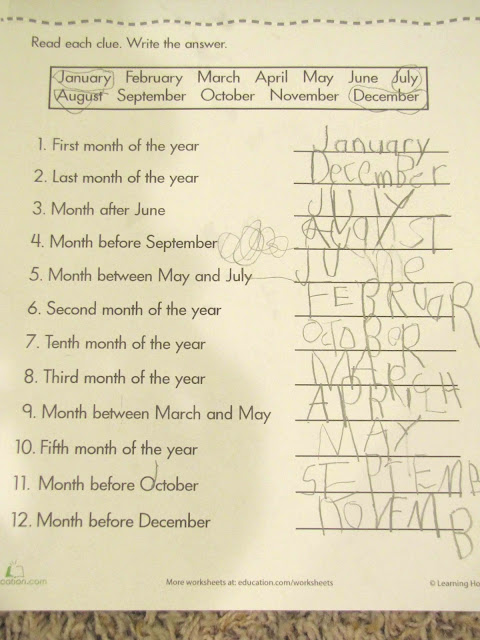 Read each clue. Write the answer.
January February March April May June July
August September October November December
1. First month of the year January
2. Last month of the year December
3. Month after June JULY
4. Month before September AUGUST
5. Month between May and July JUNe
6. Second month of the year FEBRUAR
7. Tenth month of the year OCTOBOR
8. Third month of the year MARCH
9. Month between March and May APRIL
10. Fifth month of the year MAY
11. Month before October SEPTEMB
12. Month before December NOVEMB
cation.com More worksheets at: education.com/worksheets © Learning Ho